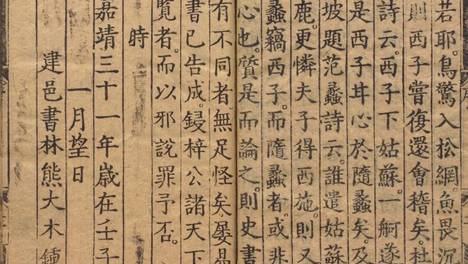 若耶。鳥驚入松網。魚畏沉
則西子嘗復還會稽矣。杜
詩云。西子下姑蘇。一舸遂
是西子甘心於隨蠡矣。及
坡題范蠡詩云。誰遣姑蘇
鹿。更憐夫子得西施。則
蠡竊西子。而隨蠡者。或非
心也。質是而論之。則史書
有不同者。無足怪矣。屡是
書已告成。鋟梓公諸天下
覽者。而以邪說罪予否。
時
嘉靖三十一年歲在壬子
一月望日
建邑書林熊大木鍾